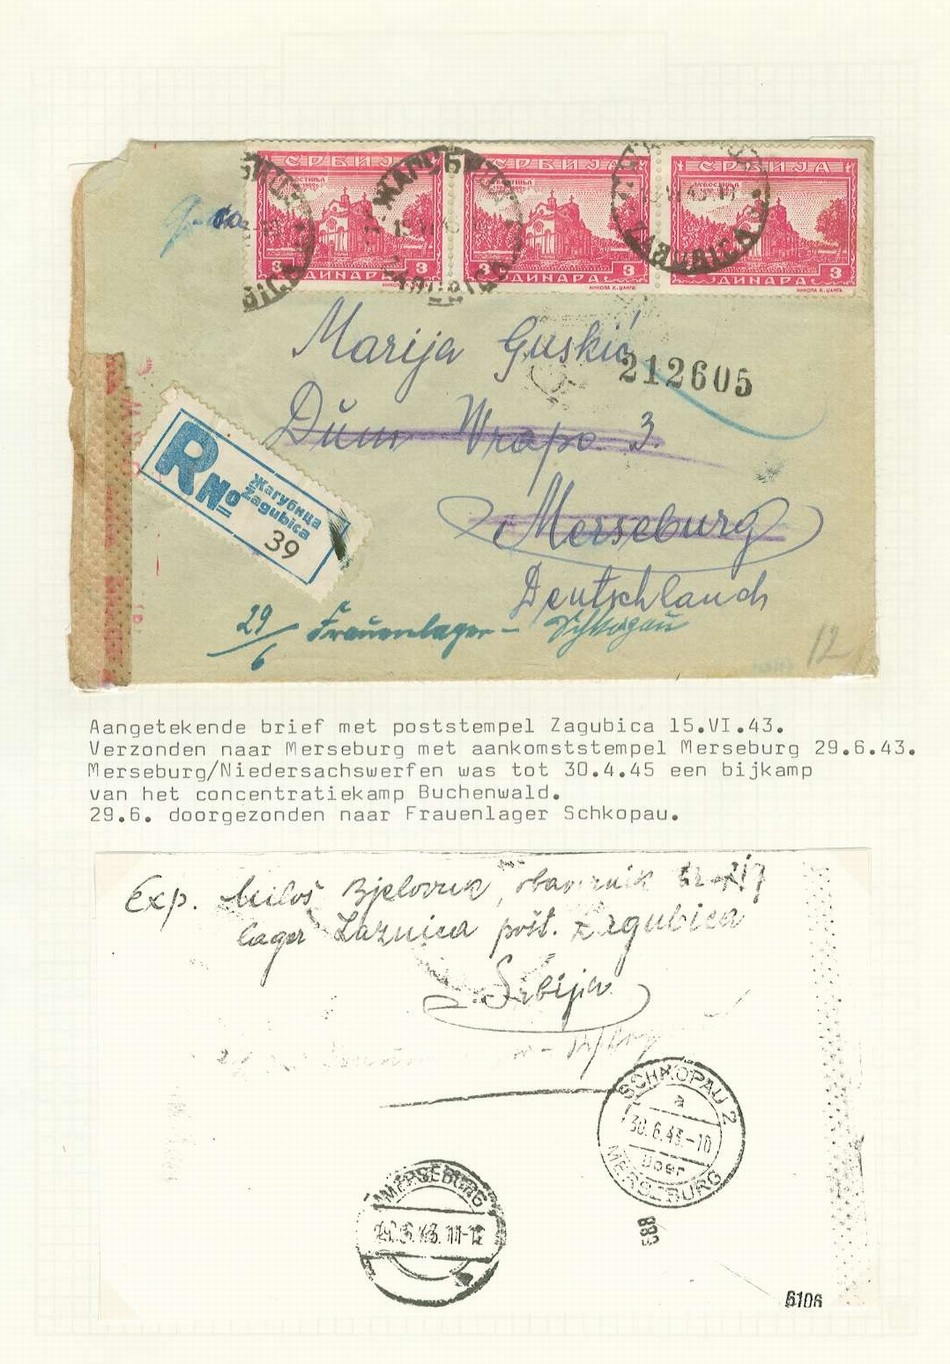 СРБИЈА СРБИЈА СРБИЈА
3 ДИНАРА 3 3 ДИНАРА 3 3 ДИНАРА 3
ЖАГУБИЦА
ZAGUBICA
Marija Guskić
212605
Dŭm Wrapo 3.
Merseburg
Deutschland
R No
Жагубица
Žagubica
39
29/6 Frauenlager - Schkopau
12
Aangetekende brief met poststempel Zagubica 15.VI.43.
Verzonden naar Merseburg met aankomststempel Merseburg 29.6.43.
Merseburg/Niedersachswerfen was tot 30.4.45 een bijkamp
van het concentratiekamp Buchenwald.
29.6. doorgezonden naar Frauenlager Schkopau.
Exp. Miloš
lager Laznica pošt. Zagubica
Srbija
SCHKOPAU 2
a
30.6.43.-10
über
MERSEBURG
MERSEBURG
29.6.43.11-12
883
6106